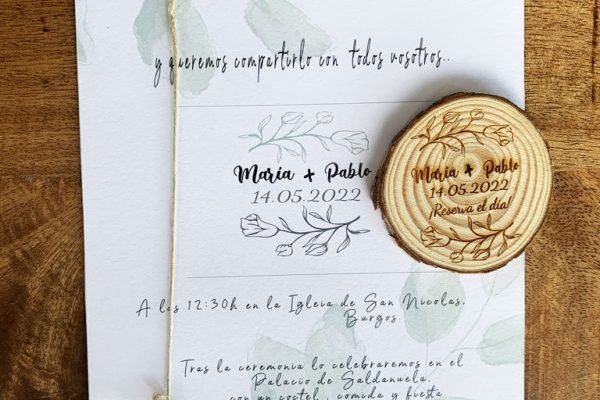 y queremos compartirlo con todos vosotros..
María + Pablo
14.05.2022
María + Pablo
14.05.2022
¡Reserva el día!
A las 12:30h en la Iglesia de San Nicolas.
Burgos.
Tras la ceremonia lo celebraremos en el
Palacio de Saldañuela.
con un coctel , comida y fiesta